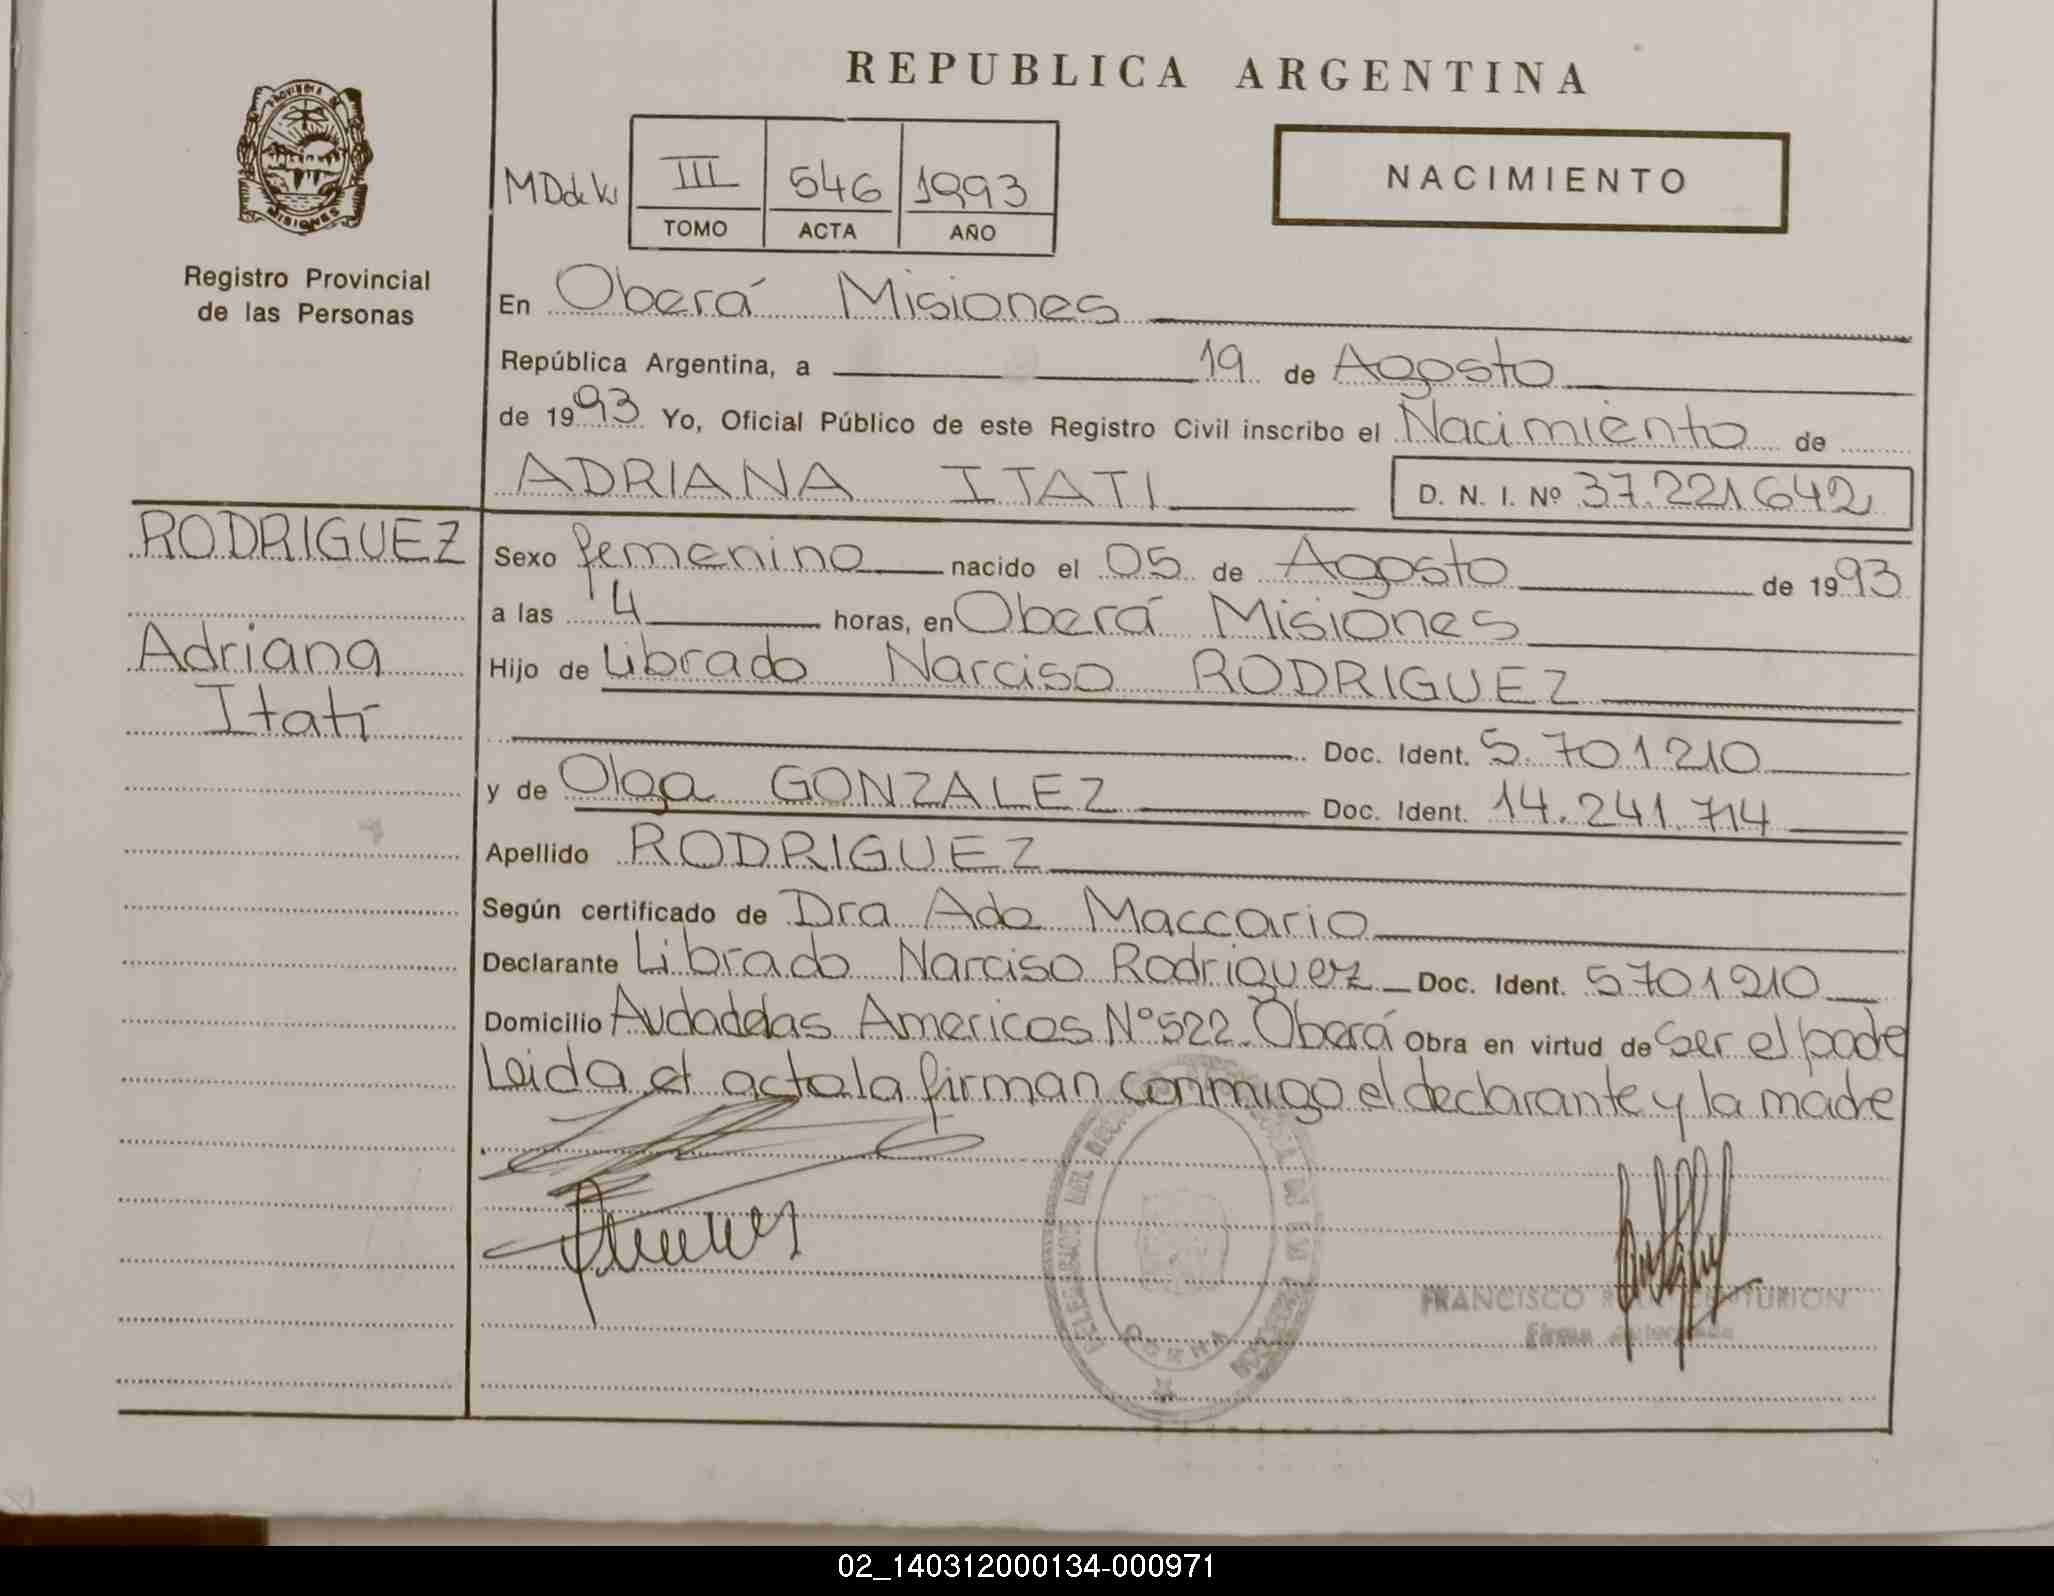 REPUBLICA ARGENTINA
NACIMIENTO
PROVINCIA DE
MISIONES
Registro Provincial
de las Personas
III 546 1993
TOMO ACTA AÑO
En Oberá Misiones
República Argentina, a 19 de Agosto
de 1993 Yo, Oficial Público de este Registro Civil inscribo el Nacimiento de
ADRIANA ITATI D. N. I. Nº 37.221642
RODRIGUEZ
Adriana
Itatí
Sexo femenino nacido el 05 de Agosto de 1993
a las 4 horas, en Oberá Misiones
Hijo de Librado Narciso RODRIGUEZ
Doc. Ident. 5.701210
y de Olga GONZALEZ Doc. Ident. 14.241.714
Apellido RODRIGUEZ
Según certificado de Dra Ada Maccario
Declarante Librado Narciso Rodriguez Doc. Ident. 5701210
Domicilio Americas Nº 522 Oberá Obra en virtud de Ser el padre
Leida el acta la firman conmigo el declarante y la madre
FRANCISCO
Firma autorizada
02_140312000134-000971